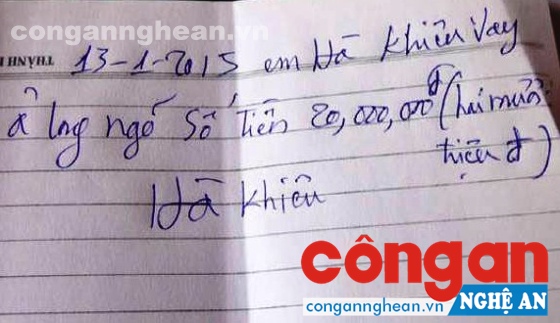 congannghean.vn
THANH
13-1-2015 em Hà Khiêu Vay
ả lng ngố Số Tiền 20,000,000đ (hai mươi
triệu đ)
Hà Khiêu
côngan
congannghean.vn
NGHỆ AN